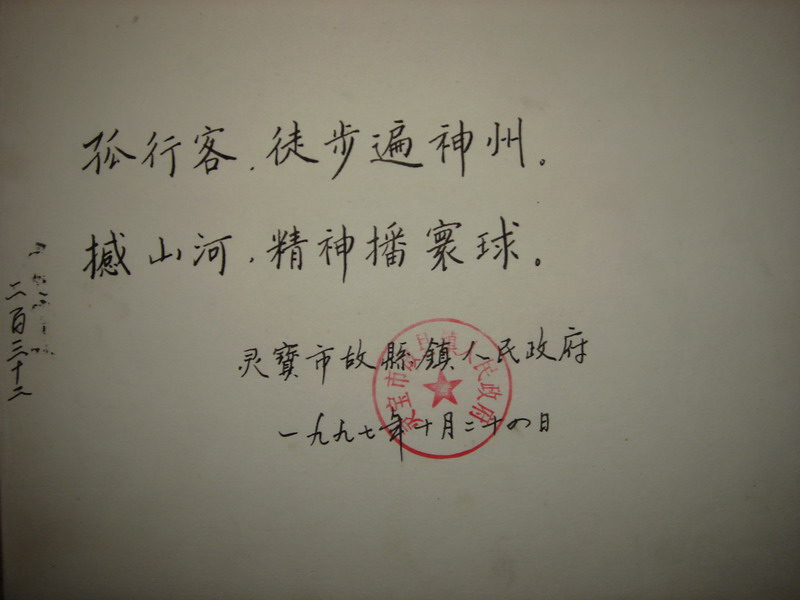 孤行客，徒步遍神州。
撼山河，精神播寰球。
灵寶市故縣鎮人民政府
一九九七年十月二十四日
灵宝市故县镇人民政府
二百三十二